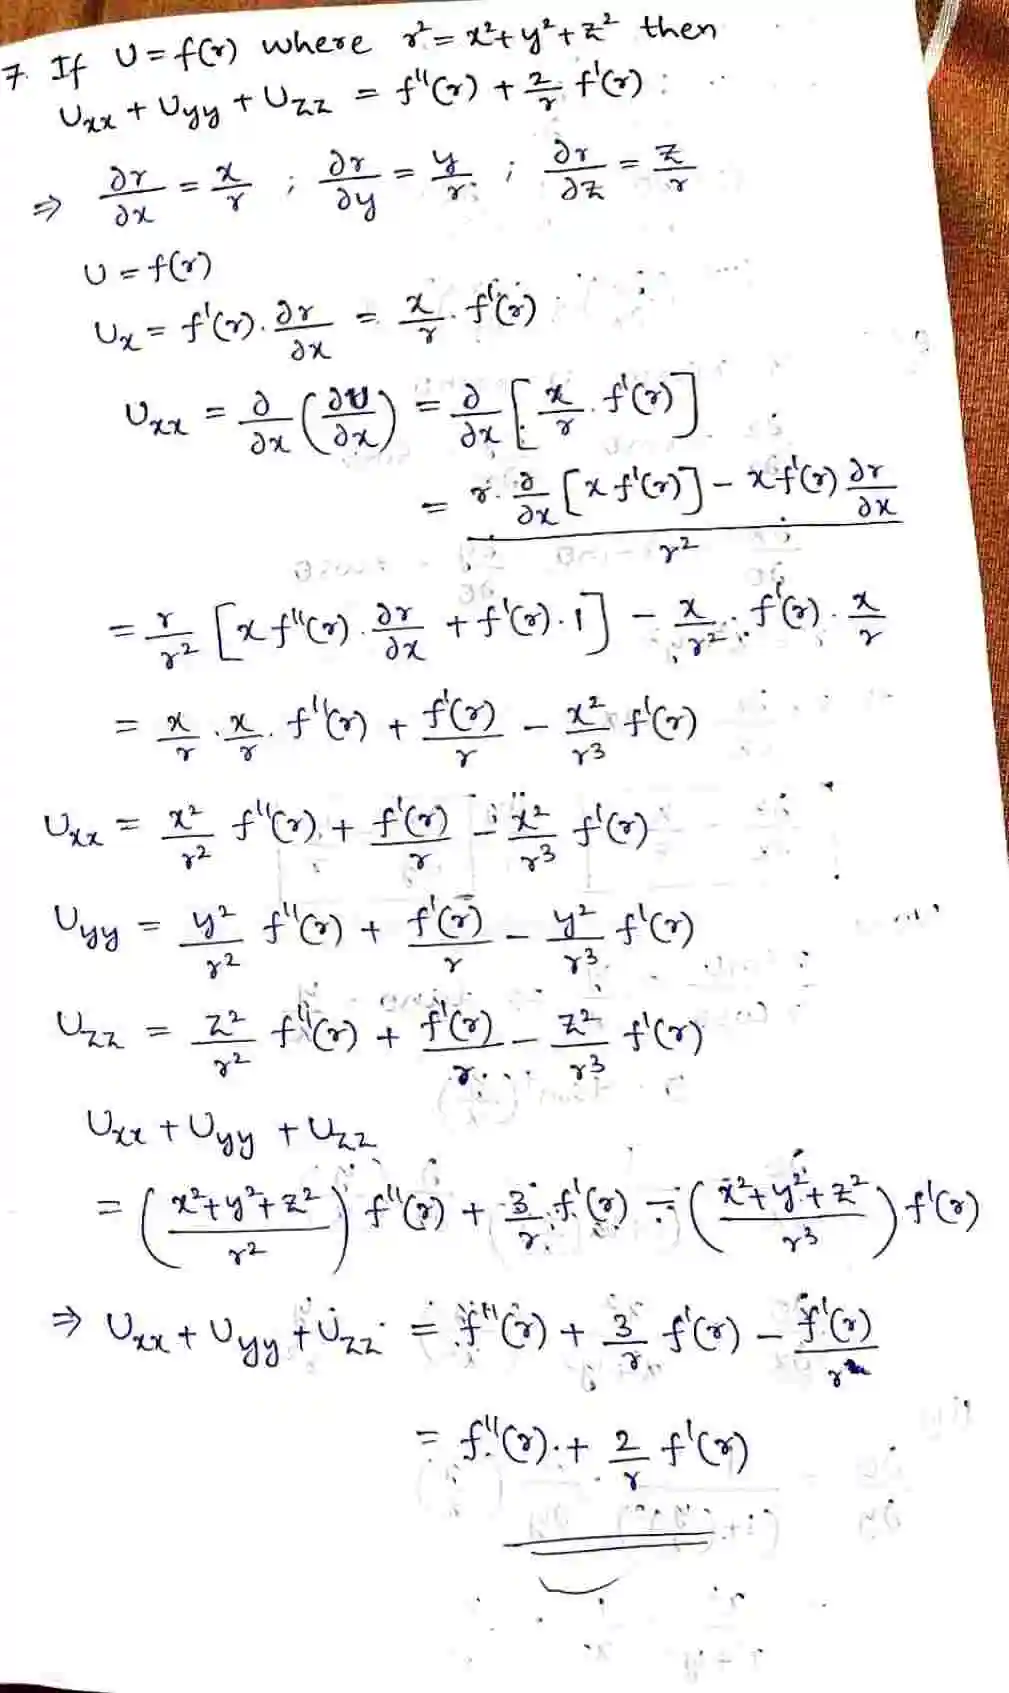 7. If U = f(r) where r² = x² + y² + z² then
Uxx + Uyy + Uzz = f''(r) + 2/r f'(r)
⇒ ∂r/∂x = x/r ; ∂r/∂y = y/r ; ∂r/∂z = z/r
U = f(r)
Ux = f'(r) . ∂r/∂x = x/r . f'(r)
Uxx = ∂/∂x (∂U/∂x) = ∂/∂x [x/r . f'(r)]
= (r . ∂/∂x [x f'(r)] - x f'(r) ∂r/∂x) / r²
= r/r² [x f''(r) . ∂r/∂x + f'(r) . 1] - x/r² . f'(r) . x/r
= x/r . x/r . f''(r) + f'(r)/r - x²/r³ f'(r)
Uxx = x²/r² f''(r) + f'(r)/r - x²/r³ f'(r)
Uyy = y²/r² f''(r) + f'(r)/r - y²/r³ f'(r)
Uzz = z²/r² f''(r) + f'(r)/r - z²/r³ f'(r)
Uxx + Uyy + Uzz
= ((x² + y² + z²)/r²) f''(r) + 3/r f'(r) - ((x² + y² + z²)/r³) f'(r)
⇒ Uxx + Uyy + Uzz = f''(r) + 3/r f'(r) - f'(r)/r
= f''(r) + 2/r f'(r)